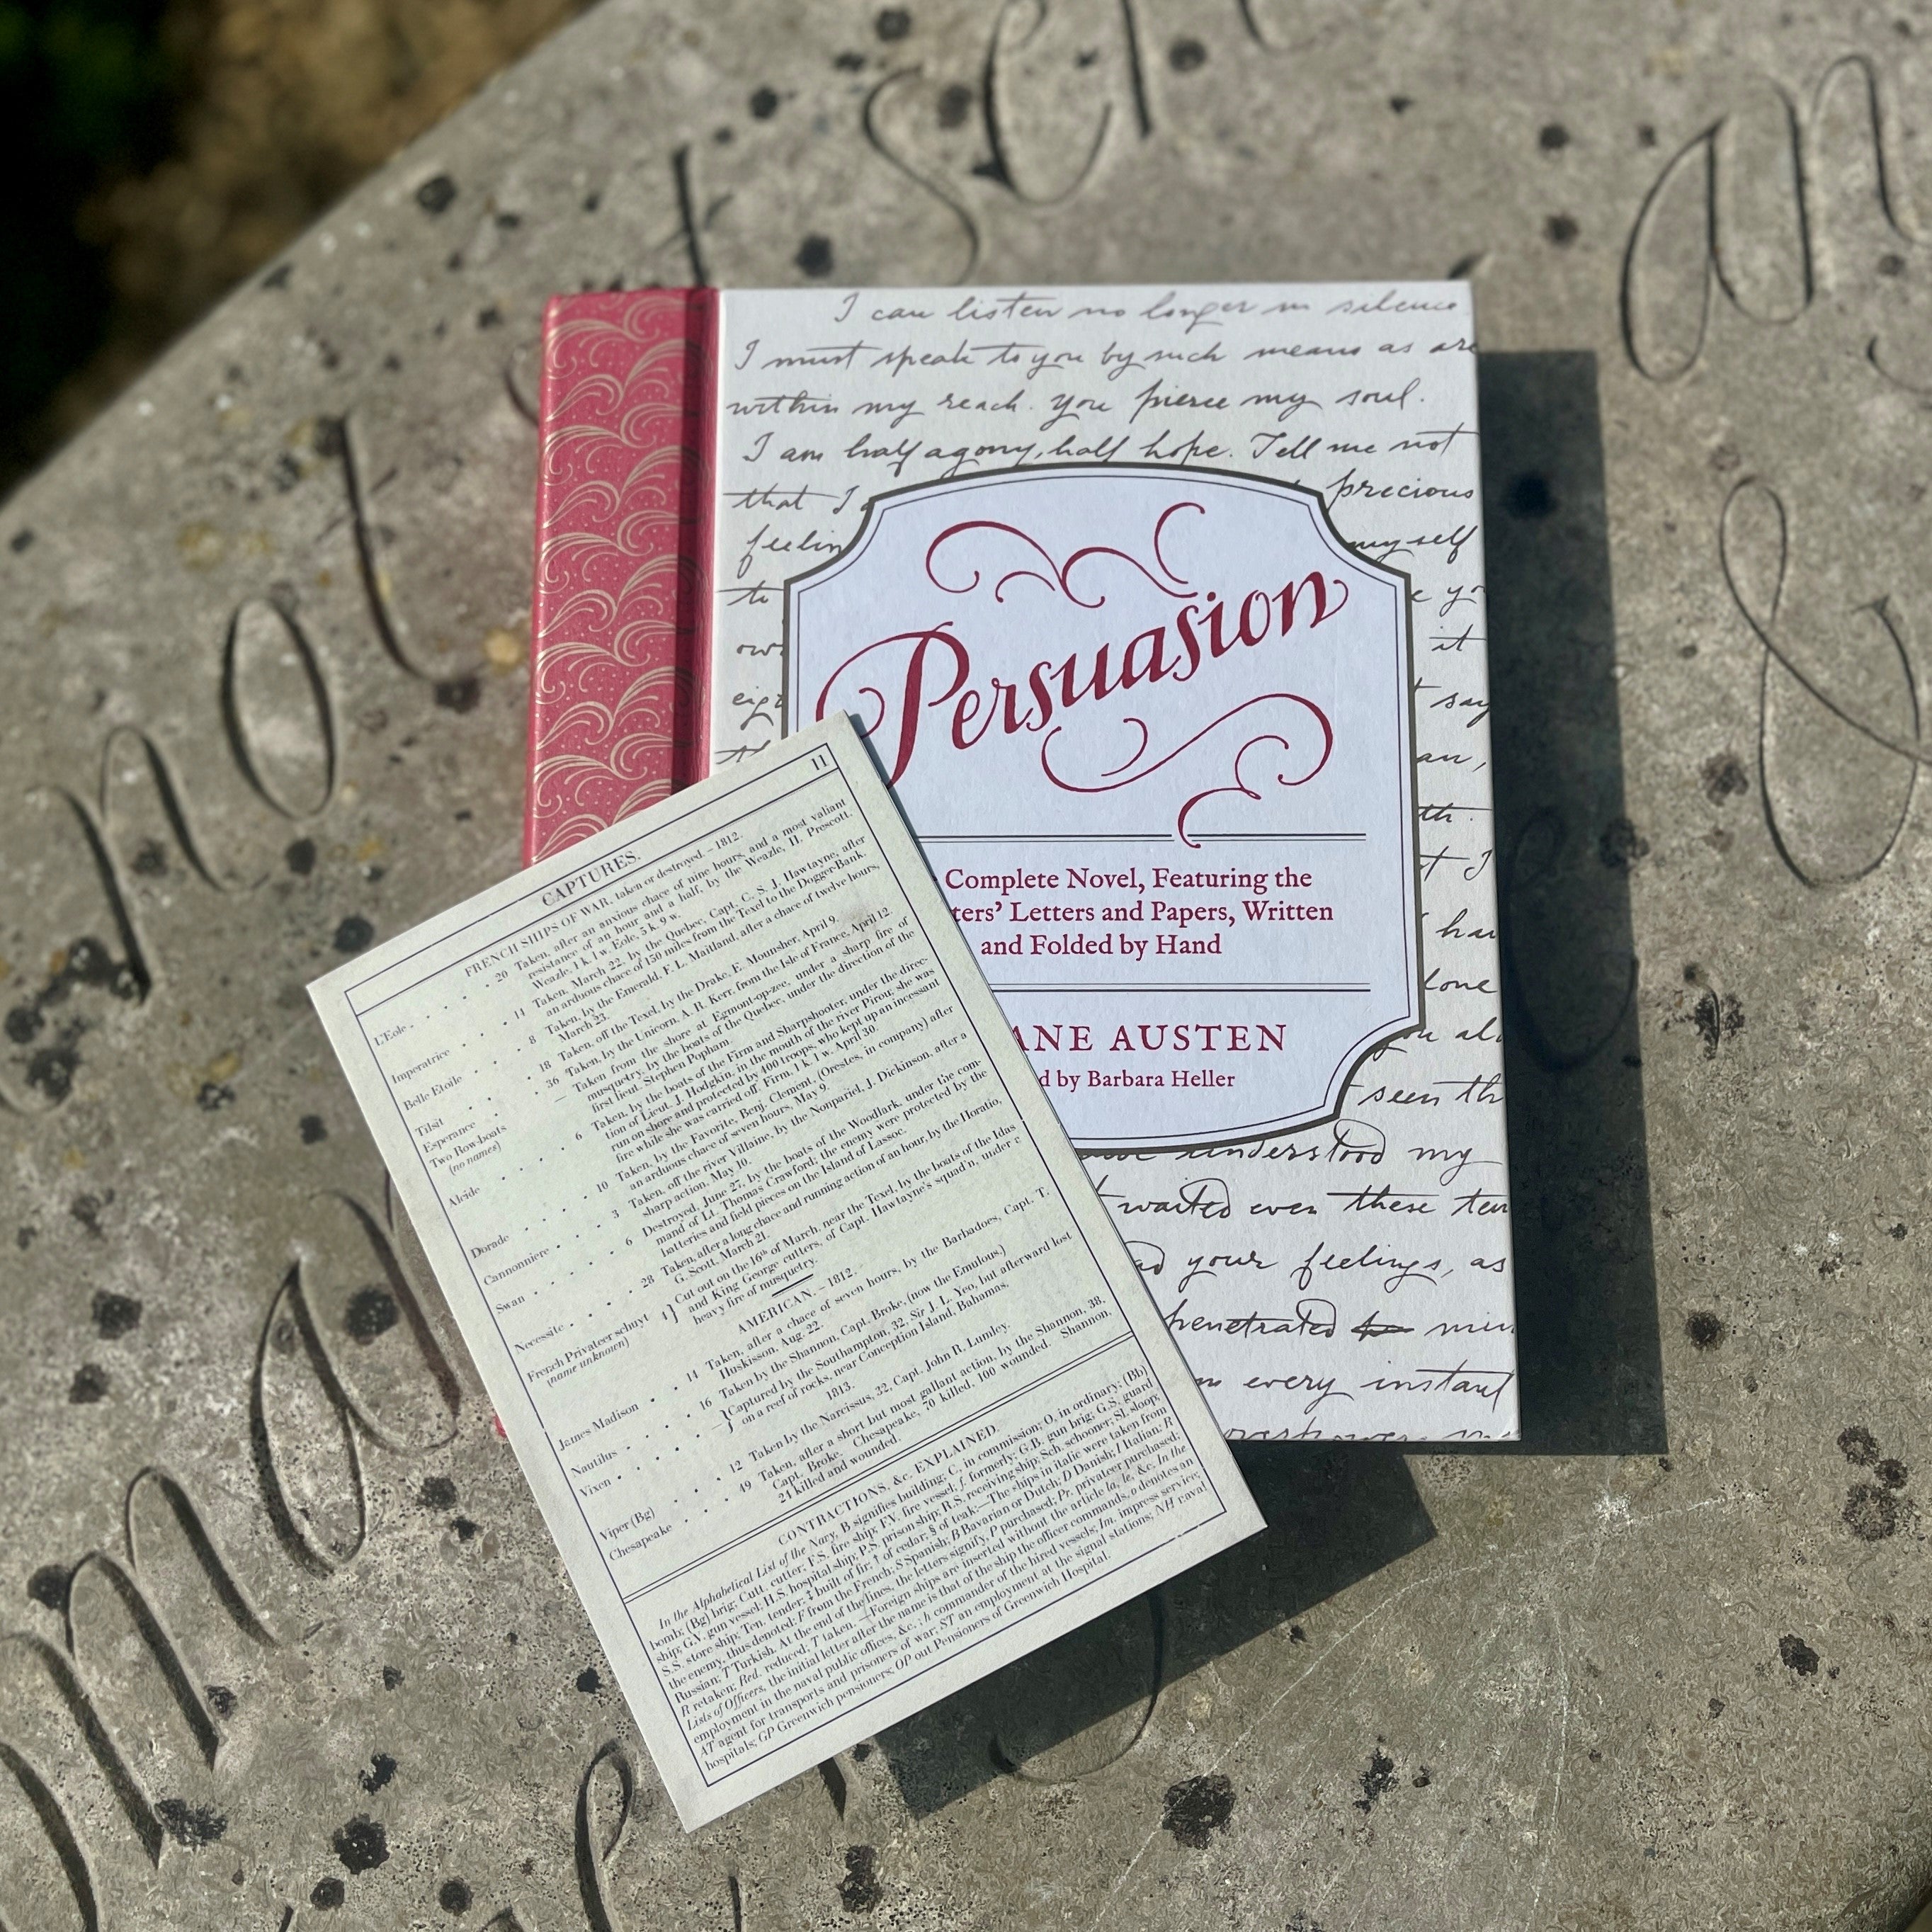 t sel
an
not
&
man
I can listen no longer in silence
I must speak to you by such means as are
within my reach. You pierce my soul.
I am half agony, half hope. Tell me not
that I precious
feelin myself
to
ow it
eig say
an,
th.
t I
ha
lone
seen th
understood my
waited even these ten
your feelings, as
penetrated min
every instant
Persuasion
Complete Novel, Featuring the
ters' Letters and Papers, Written
and Folded by Hand
ANE AUSTEN
d by Barbara Heller
11
CAPTURES.
FRENCH SHIPS OF WAR, taken or destroyed. – 1812.
L'Eole . . . . . 20 Taken, after an anxious chace of nine hours, and a most valiant
resistance of an hour and a half, by the Weazle, H. Prescott.
Weazle, 1 k. 1 w. Eole, 5 k. 9 w.
Imperatrice . . . . 14 Taken, March 22, by the Quebec, Capt. C. S. J. Hawtayne, after
an arduous chace of 150 miles from the Texel to the Dogger-Bank.
Belle Etoile . . . . 8 Taken, by the Emerald, F. L. Maitland, after a chace of twelve hours,
March 23.
Tilsit . . . . 18 Taken, off the Texel, by the Drake, E. Mounsher, April 9.
Esperance . . . . 36 Taken, by the Unicorn, A. R. Kerr, from the Isle of France, April 12.
Two Row-boats — Taken from the shore at Egmont-op-zee, under a sharp fire of
(no names) musquetry, by the boats of the Quebec, under the direction of the
first lieut. Stephen Popham.
Alcide . . . . 6 Taken, by the boats of the Firm and Sharpshooter, under the direc-
tion of Lieut. J. Hodgkin, in the mouth of the river Pirou; she was
run on shore and protected by 400 troops, who kept up an incessant
fire while she was carried off. Firm, 1 k. 1 w. April 30.
Dorade . . . . 10 Taken, by the Favorite, Benj. Clement, (Orestes, in company) after
an arduous chace of seven hours, May 9.
Cannonniere . . . . 3 Taken, off the river Villaine, by the Nonpariel, J. Dickinson, after a
sharp action, May 10.
Swan . . . . 6 Destroyed, June 27, by the boats of the Woodlark, under the com-
mand of Lt. Thomas Crawford; the enemy were protected by the
batteries and field pieces on the Island of Lassoc.
Necessite . . . . 28 Taken, after a long chace and running action of an hour, by the Horatio,
G. Scott, March 21.
French Privateer schuyt 4} Cut out on the 16th of March, near the Texel, by the boats of the Idas
(name unknown) and King George cutters, of Capt. Hawtayne's squad'n, under
heavy fire of musquetry.
AMERICAN. – 1812.
James Madison . . . . 14 Taken, after a chace of seven hours, by the Barbadoes, Capt. T.
Huskisson, Aug. 22.
Nautilus . . . . 16 Taken by the Shannon, Capt. Broke, (now the Emulous.)
Vixen . . . . —} Captured by the Southampton, 32, Sir J. L. Yeo, but afterward lost
on a reef of rocks, near Conception Island, Bahamas.
1813.
Viper (Bg) . . . . 12 Taken by the Narcissus, 32, Capt. John R. Lumley.
Chesapeake . . . . 49 Taken, after a short but most gallant action, by the Shannon, 38,
Capt. Broke. Chesapeake, 70 killed, 100 wounded. Shannon,
24 killed and wounded.
CONTRACTIONS, &c. EXPLAINED.
In the Alphabetical List of the Navy, B signifies building; C, in commission; O, in ordinary; (Bb)
bomb; (Bg) brig; Cutt. cutter; F.S. fire ship; F.V. fire vessel; f. formerly; G.B. gun brig; G.S. guard
ship; G.V. gun vessel; H.S. hospital ship; P.S. prison ship; R.S. receiving ship; Sch. schooner; Sl. sloop;
S.S. store ship; Ten. tender; ‡ built of fir; † of cedar; § of teak;—The ships in italic were taken from
the enemy, thus denoted; F from the French; S Spanish; B Bavarian or Dutch; D Danish; I Italian; R
Russian; T Turkish. At the end of the lines, the letters signify, P purchased; Pr. privateer purchased;
R retaken; Red. reduced; T taken.—Foreign ships are inserted without the article la, le, &c. In the
Lists of Officers, the initial letter after the name is that of the ship the officer commands, o denotes an
employment in the naval public offices, &c. ; h commander of the hired vessels; Im. impress service;
AT agent for transports and prisoners of war; ST an employment at the signal stations; NH naval
hospitals; GP Greenwich pensioners; OP out Pensioners of Greenwich Hospital.